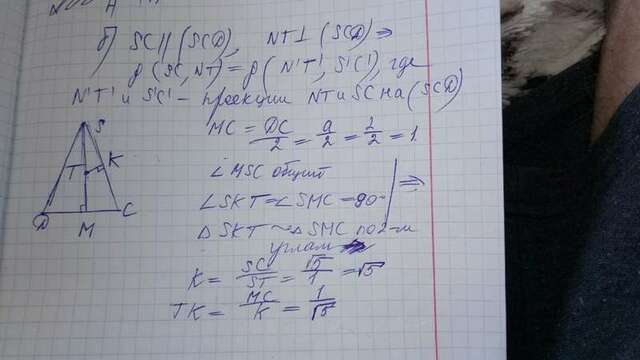 б) SC∥(SCD), NT⊥(SCD) ⇒
ρ(SC, NT)=ρ(N'T', S'C'), где
N'T' и S'C' – проекции NT и SC на (SCD)
MC = DC/2 = a/2 = 2/2 = 1
∠MSC общий
∠SKT=∠SMC=90 ⇒
△SKT~△SMC по 2-м
углам
K = SC/ST = √5/1 = √5
TK = MC/K = 1/√5
S
T
K
D
M
C